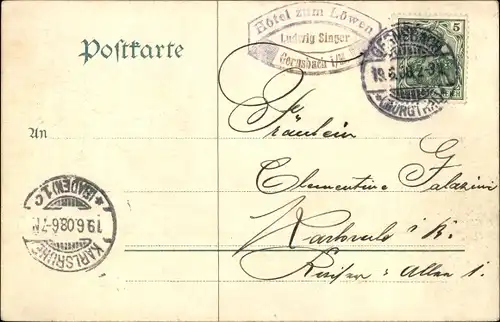 Postkarte
Hôtel zum Löwen
Ludwig Singer
Gernsbach i/M
5
GERNSBACH
19.6.08. 2-3N
(MURGTHAL)
An
Fräulein
Clementine
Karlsruhe i. B.
Allee 1.
(BADEN) 1c
19.6.08.6-7N
KARLSRUHE